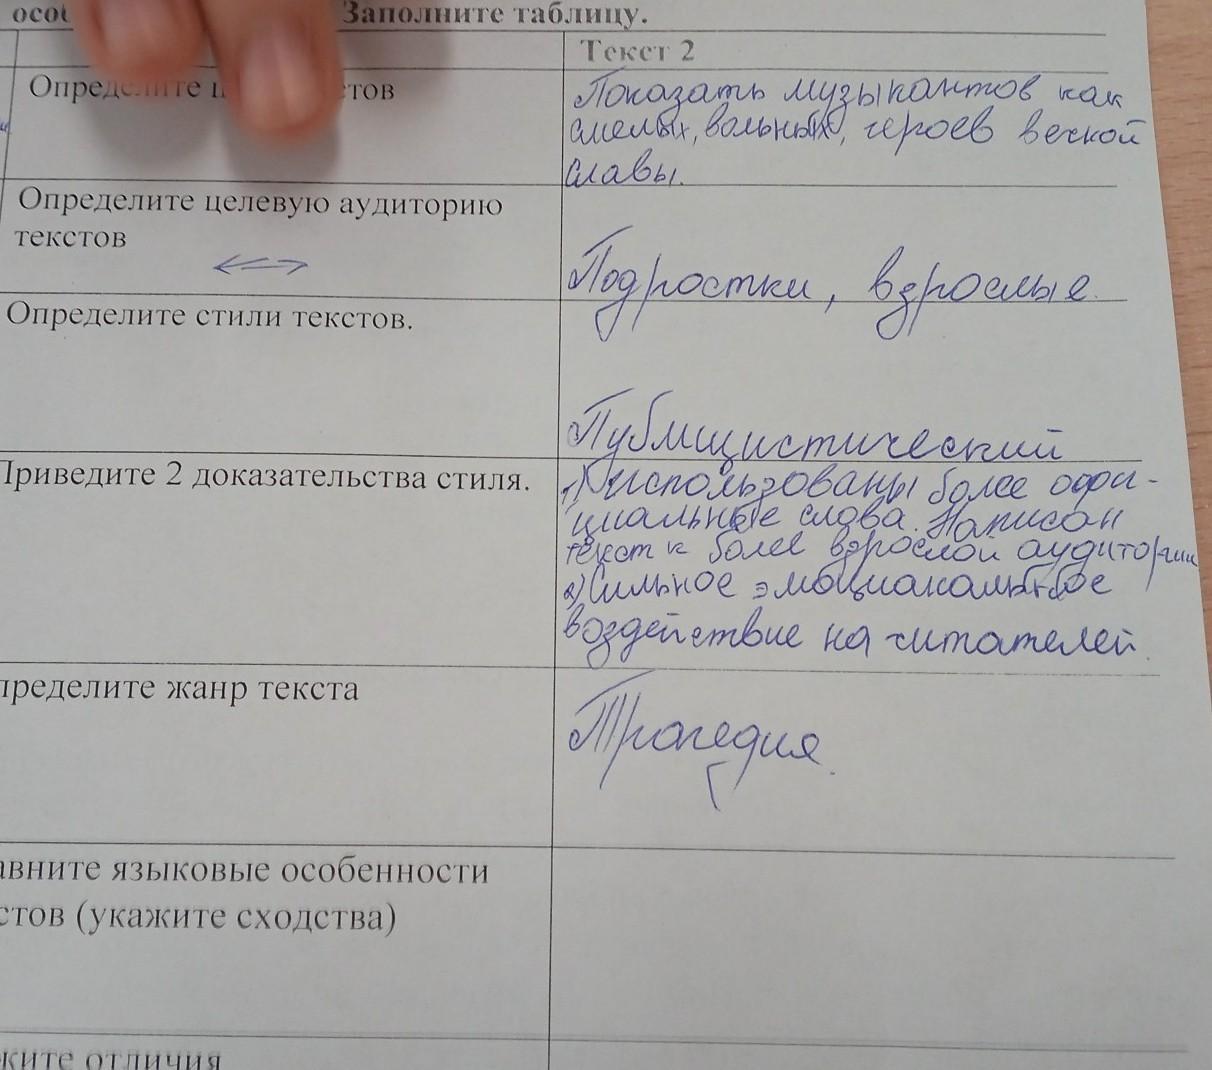 Заполните таблицу.
Текст 2
Определите
тов
Показать музыкантов как
смелых, вольных, героев вечной
славы.
Определите целевую аудиторию
текстов
Подростки, взрослые.
Определите стили текстов.
Публицистический
Приведите 2 доказательства стиля.
1) использованы более офи-
циальные слова. Написан
текст к более взрослой аудитории
2) Сильное эмоциональное
воздействие на читателей.
пределите жанр текста
Трагедия.
авните языковые особенности
стов (укажите сходства)
жите отличия